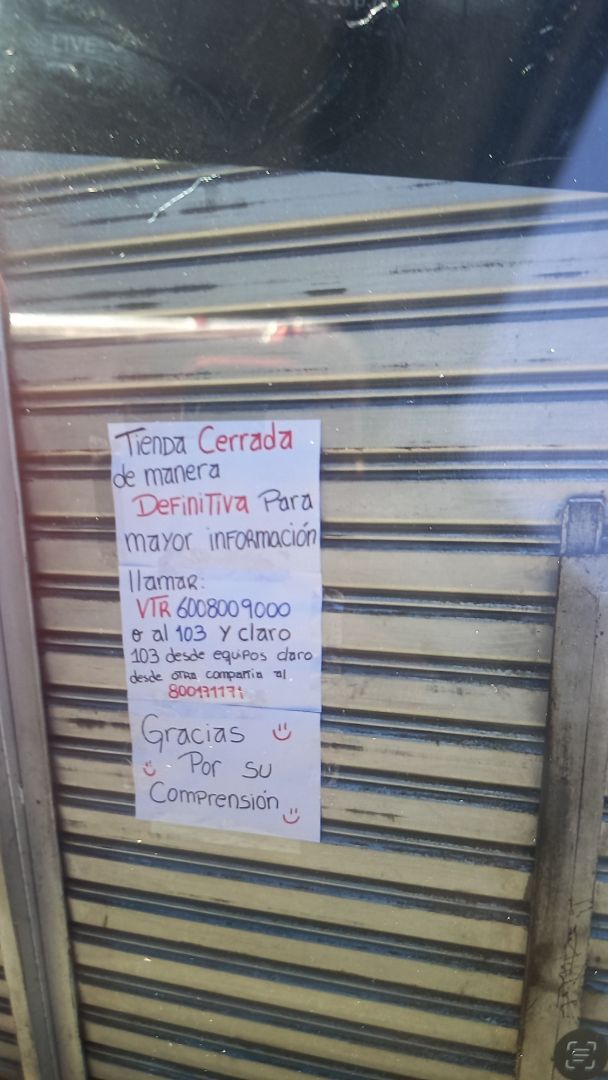 LIVE
Tienda Cerrada
de manera
Definitiva Para
mayor información
llamar:
VTR 6008009000
o al 103 y claro
103 desde equipos claro
desde otra compañia al
800171171
Gracias
Por su
Comprensión